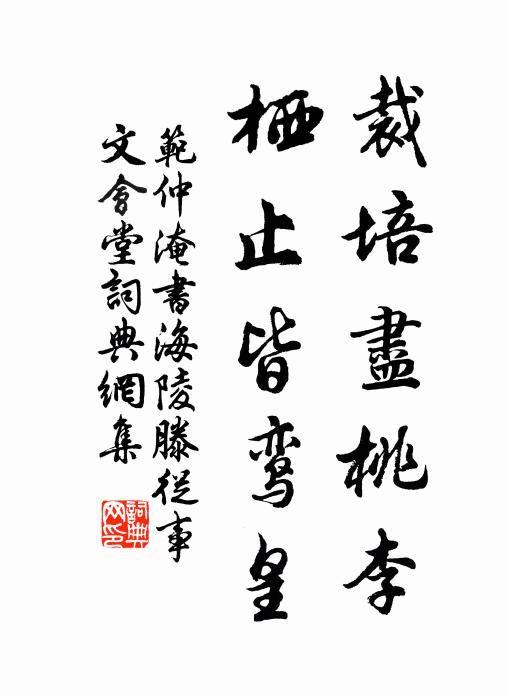 裁培盡桃李
栖止皆鸾皇
範仲淹書海陵滕從事
文會堂詞典網集
詞典
网印